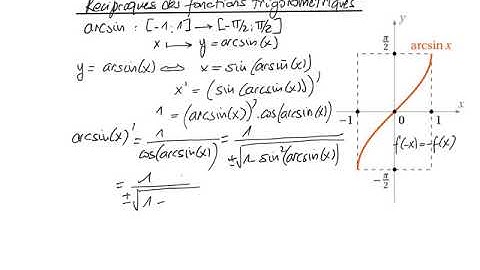 Réciproques des fonctions trigonométriques
arcsin : [-1;1] → [-π/2; π/2]
x ↦ y = arcsin(x)
y = arcsin(x) ⇔ x = sin(arcsin(x))
x' = (sin(arcsin(x)))'
1 = (arcsin(x))'. cos(arcsin(x))
arcsin(x)' = 1/cos(arcsin(x)) = 1/±√(1-sin²(arcsin(x)))
= 1/±√(1-
y
π/2
arcsin x
x
-1
0
1
f(-x)=-f(x)
-π/2